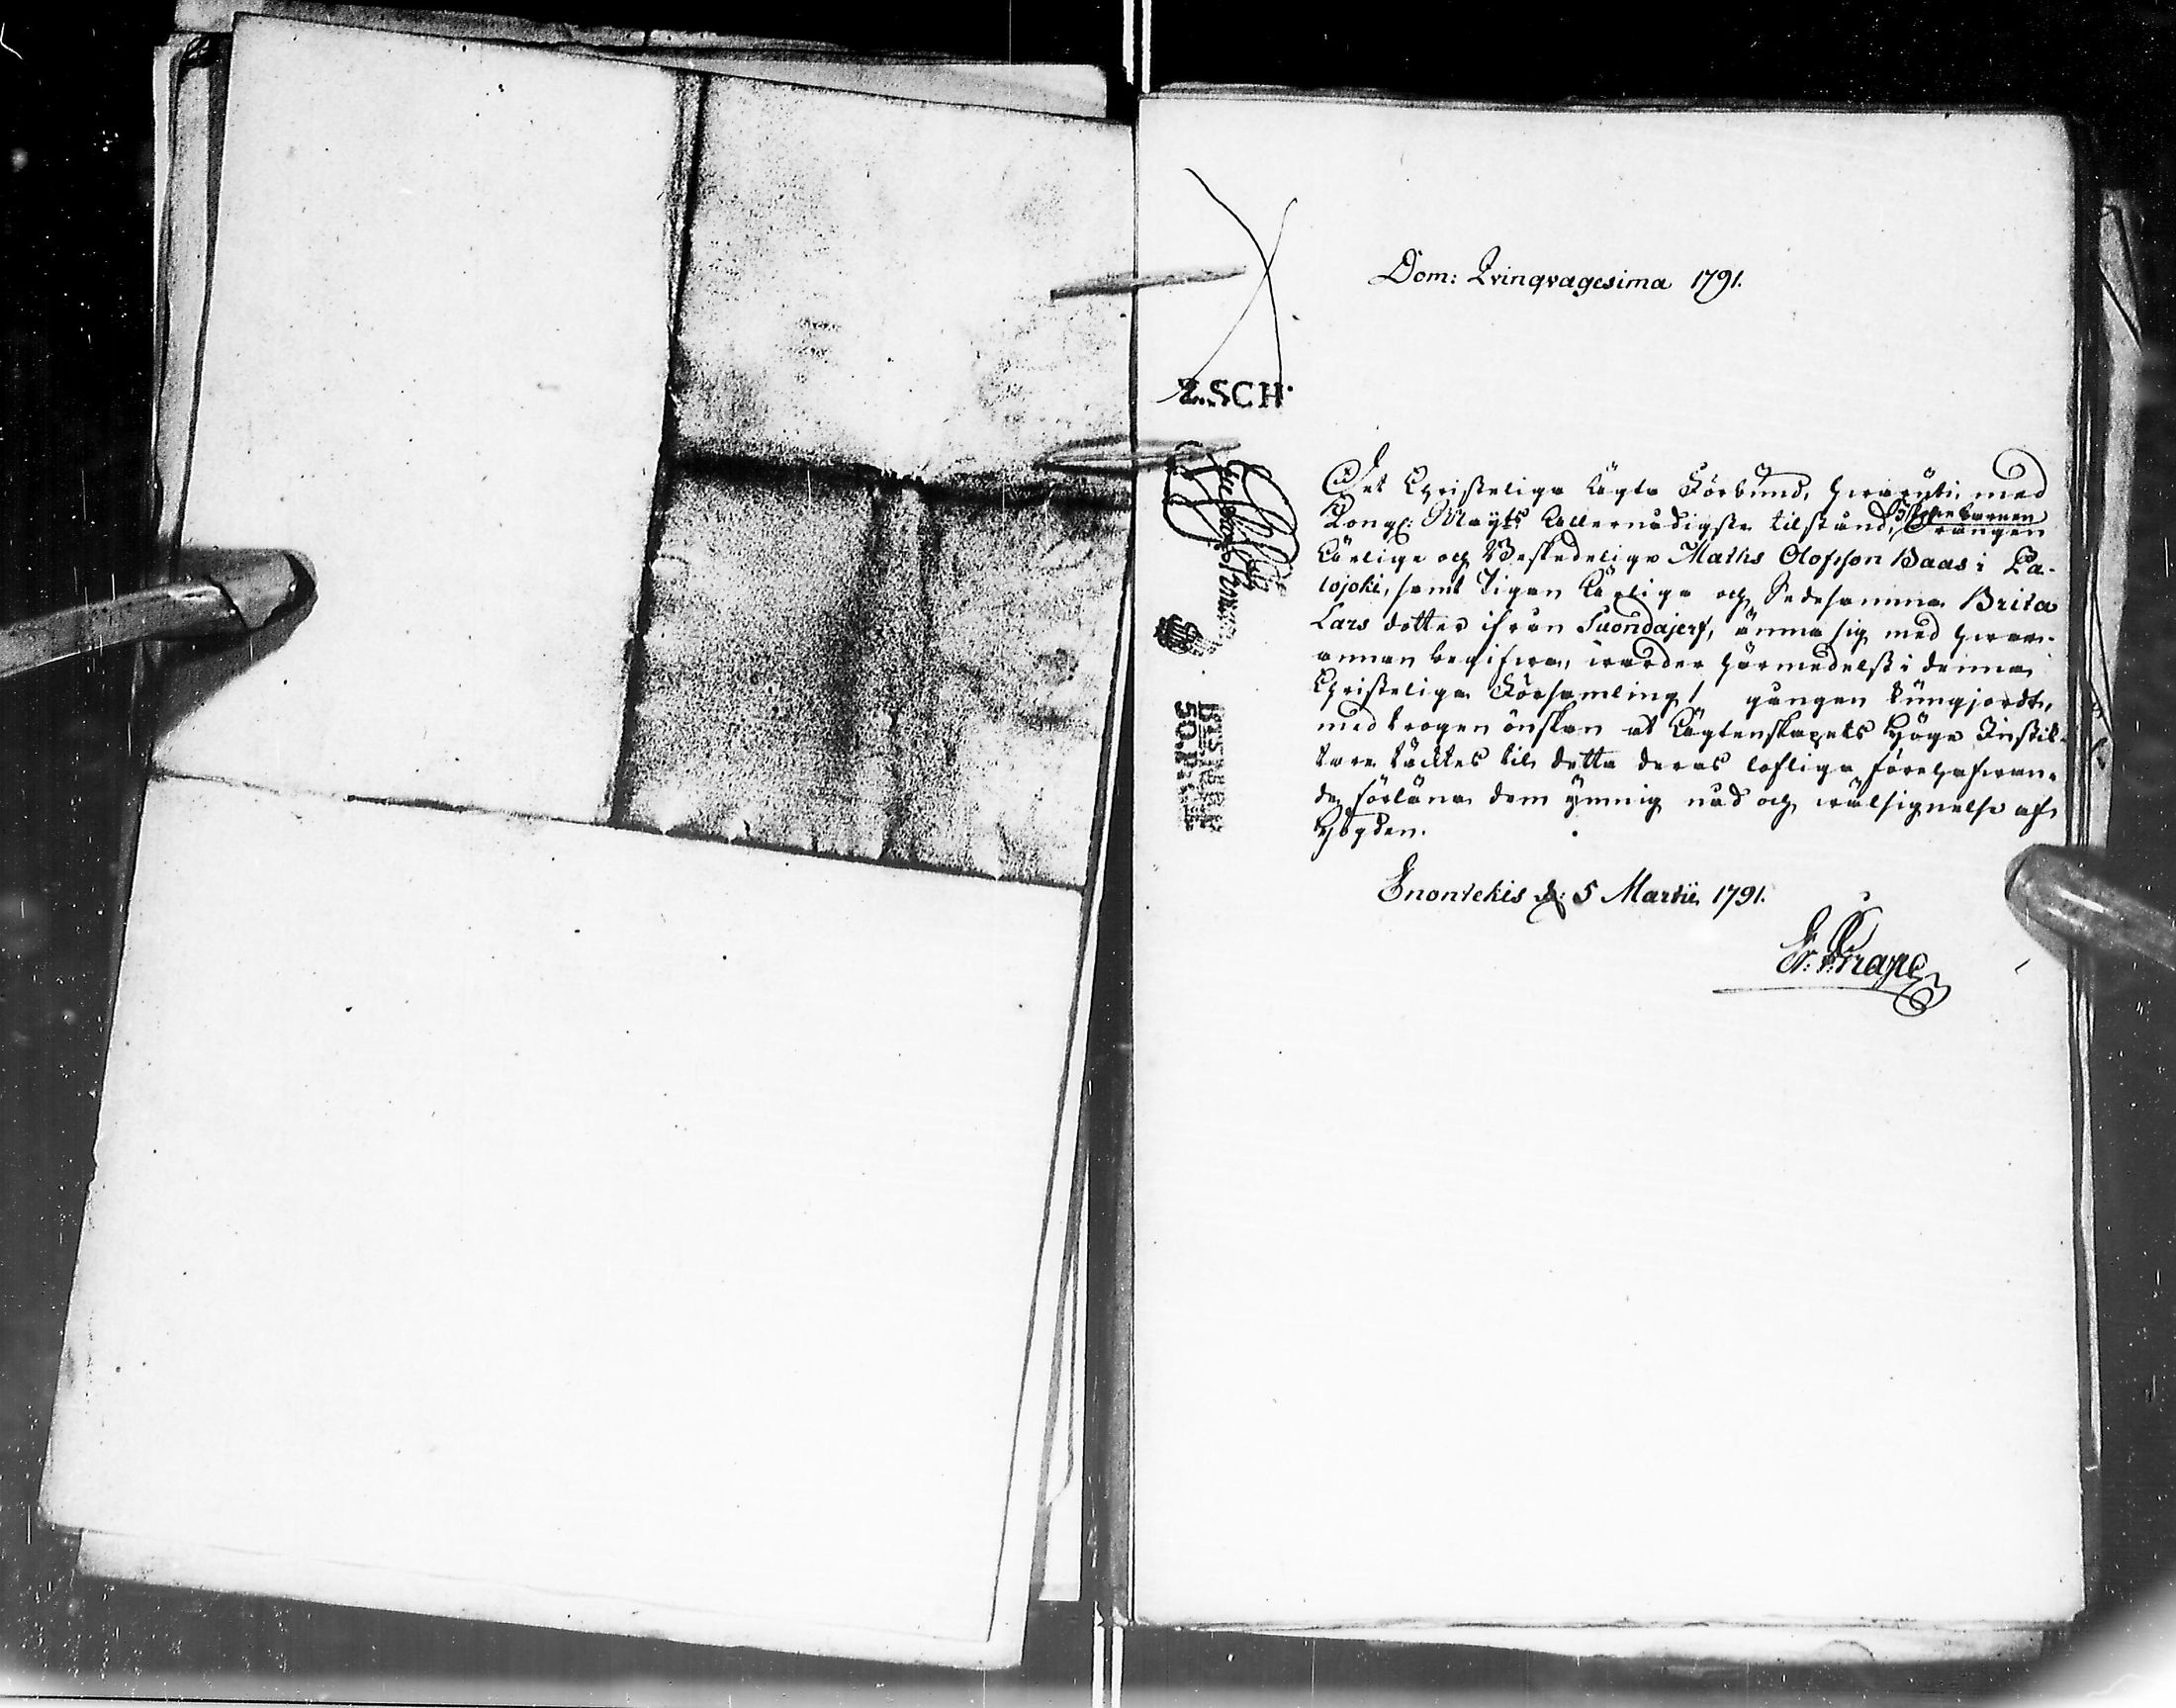 Dom: Qvinqvagesima 1791.
2.SCH.
Det Christeliga Ägta Förbund, hwaruti med
Kongl: Mayts Allernådigste tilstånd, Syskonebarnen
Drängen
Ärlige och Beskedelige Maths Olofsson Baas i Pa-
lojoki, samt Pigan Ärliga och Sedesamma Brita
Lars dotter ifrån Suondajerf, ämna sig med hwar-
annan begifwa, warder härmedelst i denna
Christeliga Församling 1 gången kungjordt,
med trogen önskan at Ägtenskapets Höge Instik-
tare täcktes til detta deras lofliga förehafwan-
de förläna dem ymnig nåd och wälsignelse af
Högden.
Enontekis d: 5 Martii 1791.
E. J. Grape